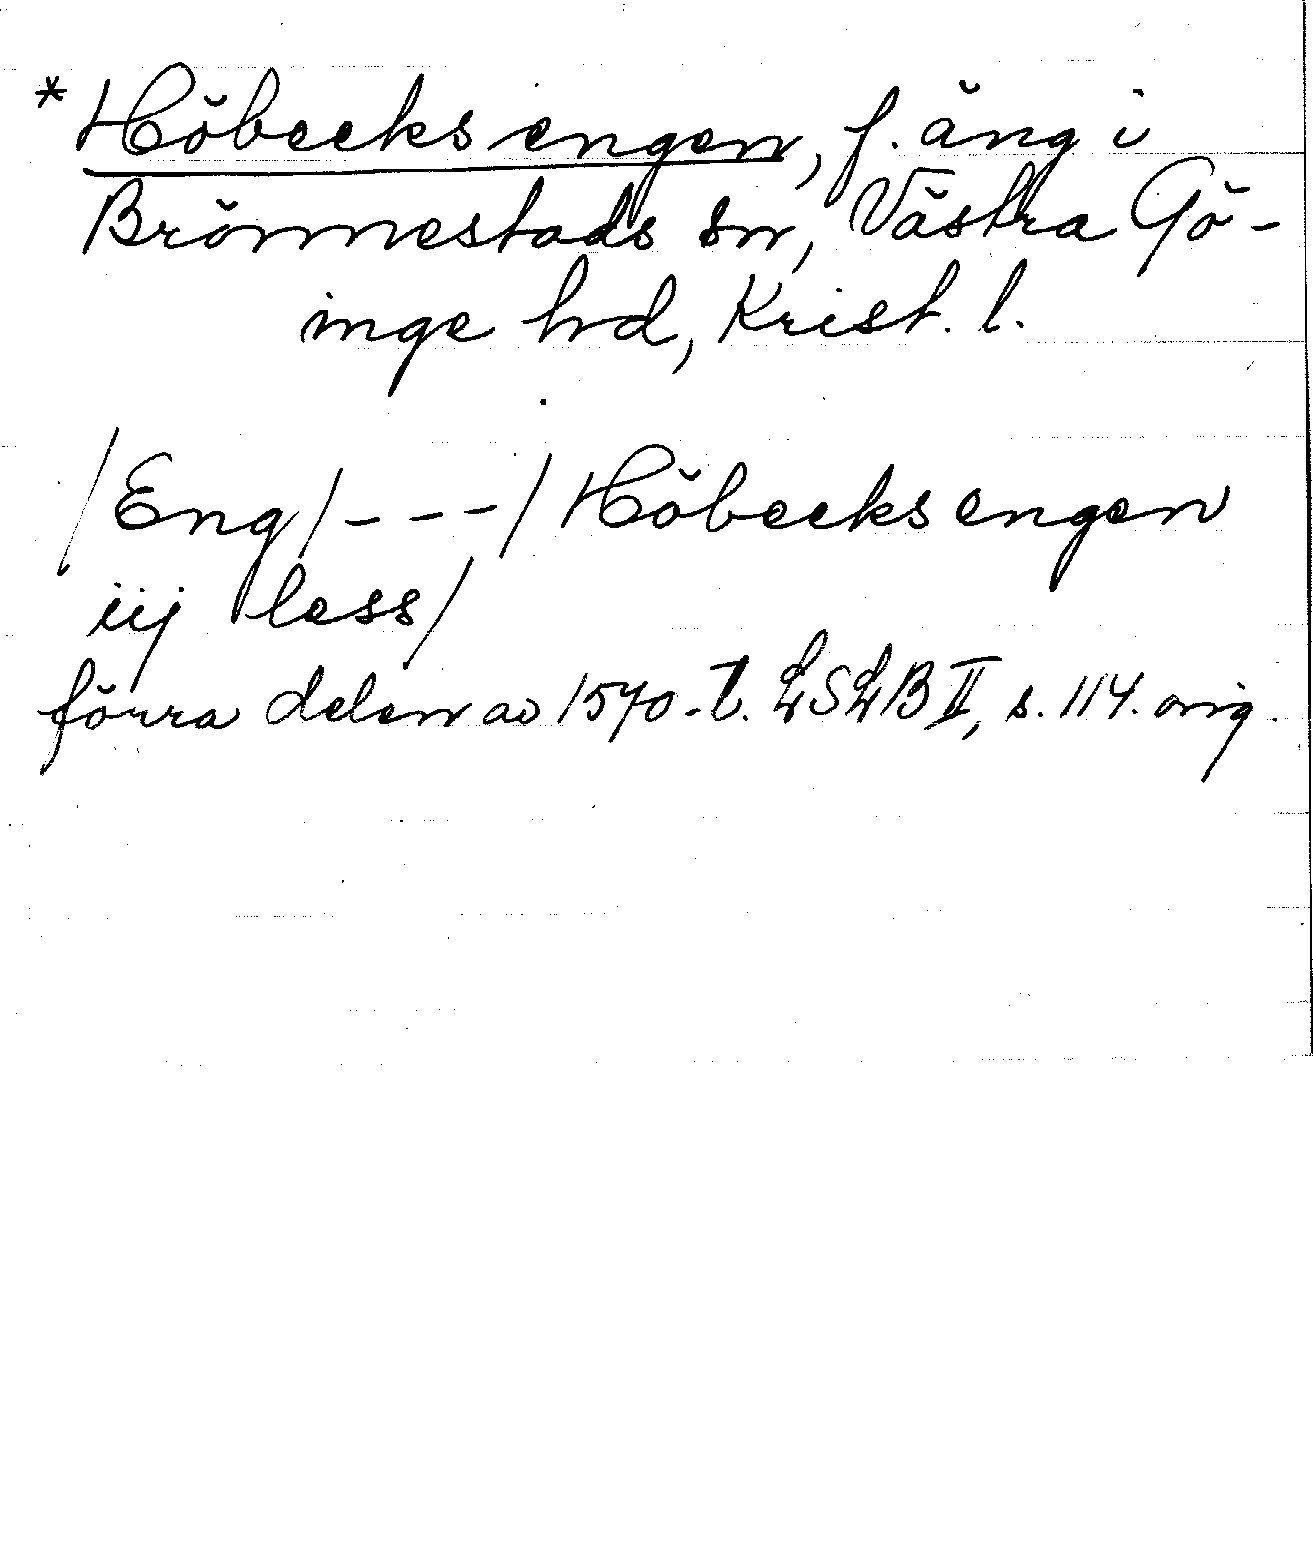 *Höbecks engen, f. äng i
Brönnestads sn, Västra Gö-
inge hd, Krist. l.
/Eng/---/ Höbecks engen
iij less/
förra delen av 1570-t. LSLB II, s. 114. orig.